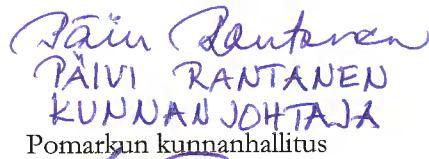 Päivi Rantanen
PÄIVI RANTANEN
KUNNANJOHTAJA
Pomarkun kunnanhallitus